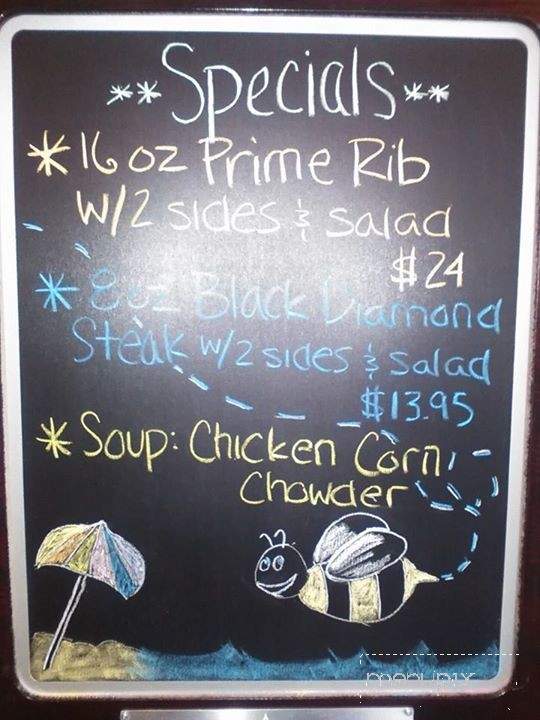 **Specials**
* 16 oz Prime Rib
W/2 sides & salad
$24
* 8 oz Black Diamond
Steak w/2 sides & salad
$13.95
* Soup: Chicken Corn
Chowder
menupix